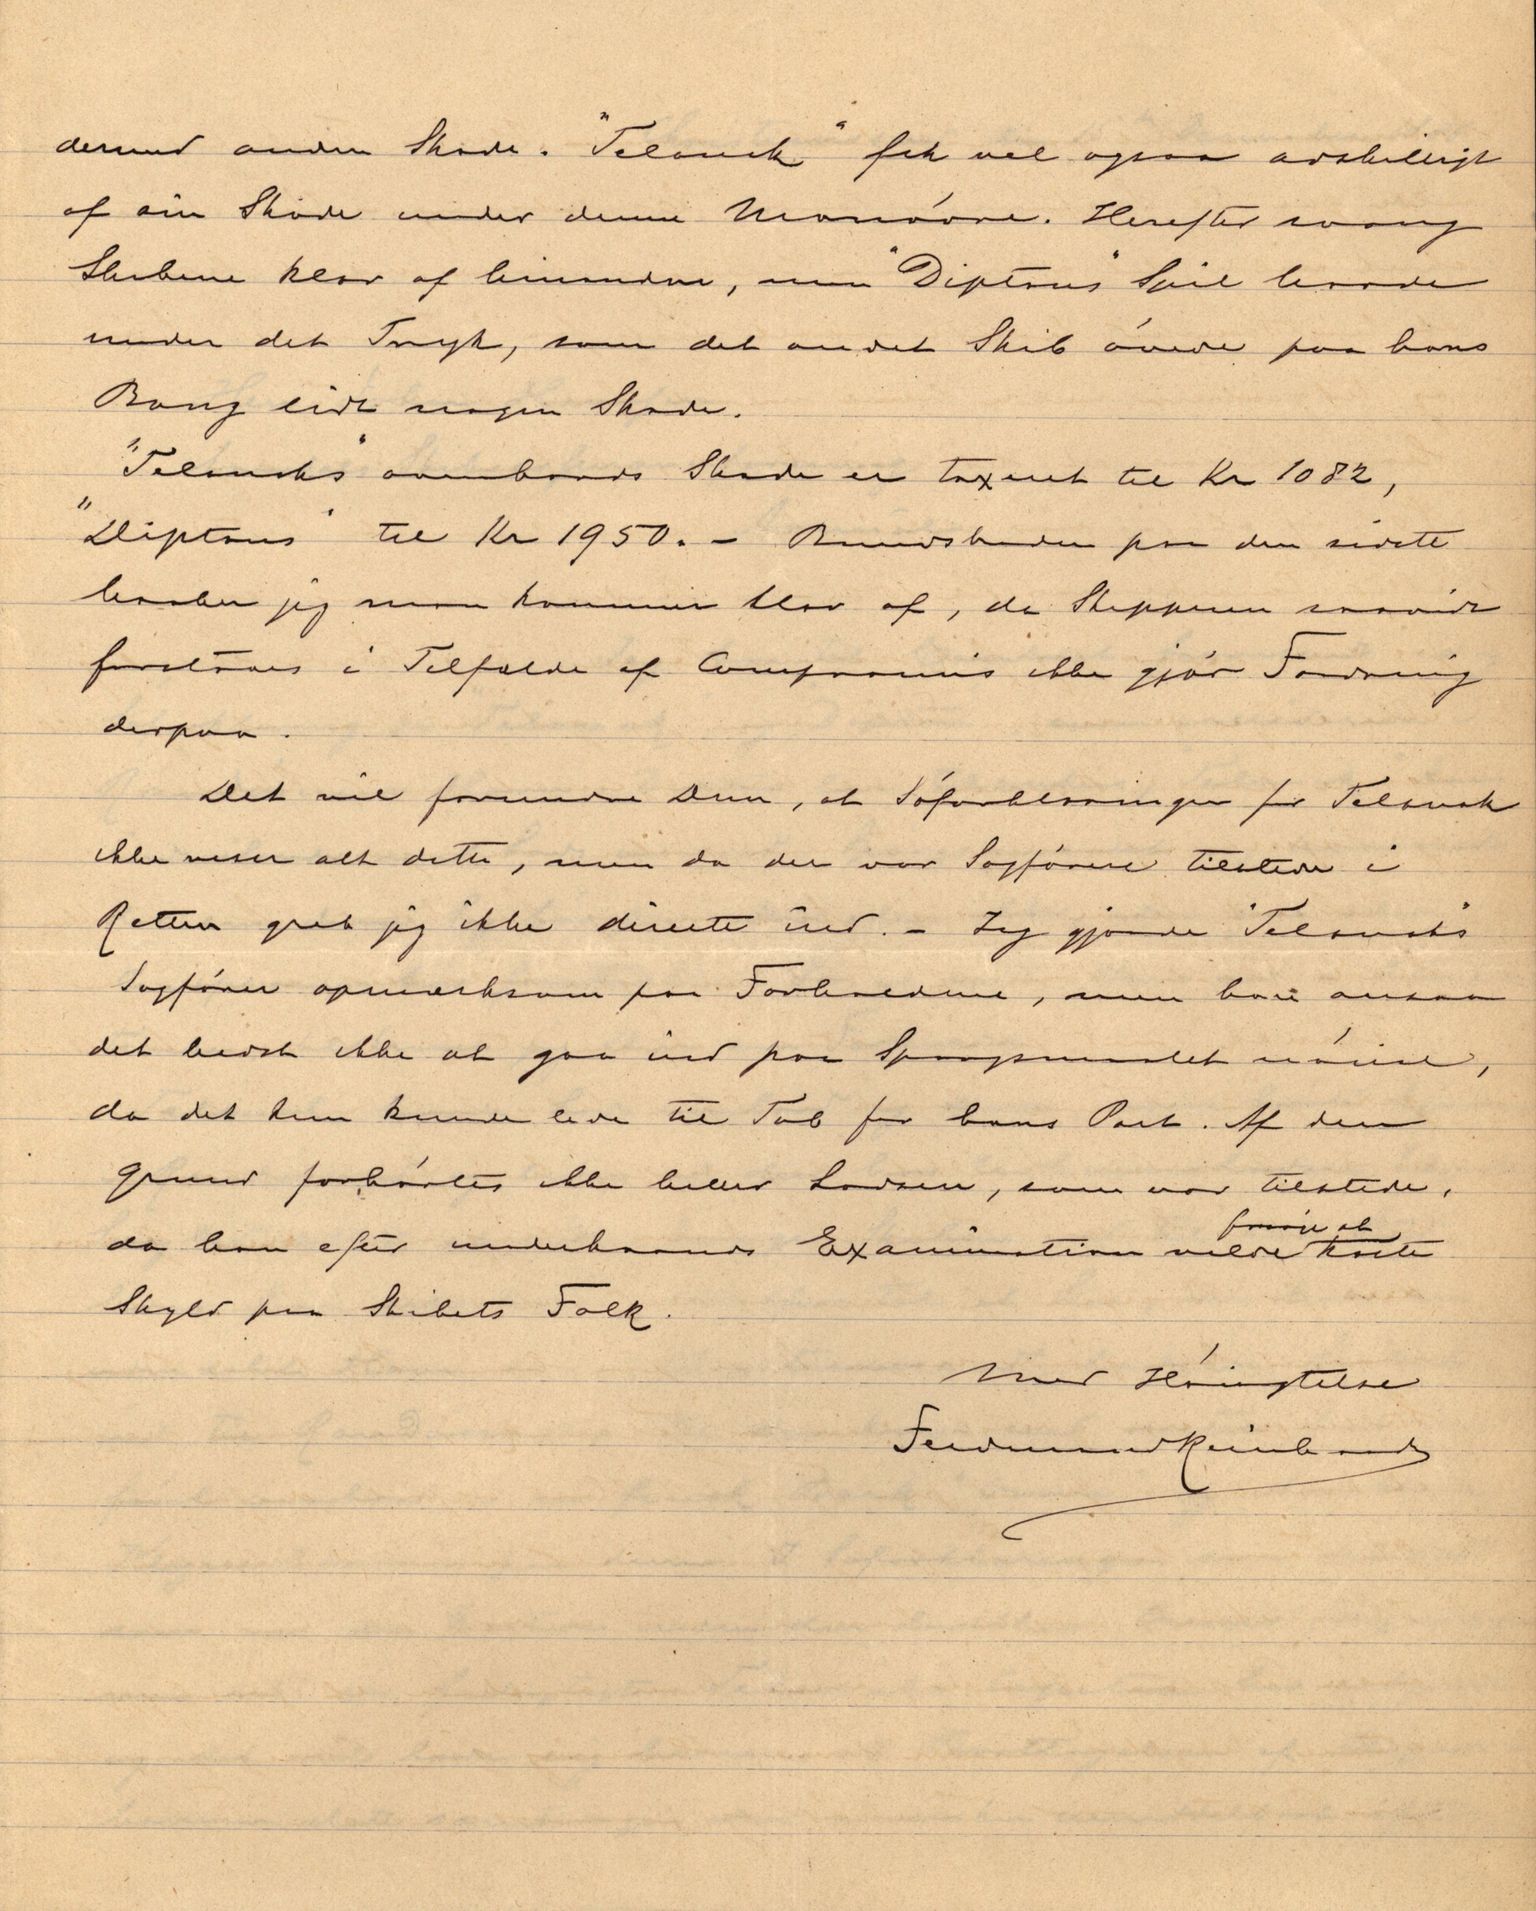 derved anden Skade. "Telanak" fik vel ogsaa adskilligt
af sin Skade under denne Manövre. Herefter svang
Skibene klar af hinanden, men "Diptons" Spil havde
under det Tryk, som det andet Skib övede paa hans
Boug lidt nogen Skade.
"Telanaks" ovenbords Skade er taxeret til Kr 1082,
"Diptons" til Kr 1950. - Bundskaden paa den sidste
haaber jeg man kommer klar af, da Skipperen saavidt
forstaaes i Tilfælde af Compromis ikke gjör Fordring
derpaa.
Det vil forundre Dem, at Söforklaringen for Telanak
ikke viser alt dette, men da der var Sagförere tilstede i
Retten greb jeg ikke directe ind. - Jeg gjorde "Telanaks"
Sagförer opmærksom paa Forholdene, men han ansaa
det bedst ikke at gaa ind paa Spörgsmaalet nöiere,
da det kun kunde lede til Tab for hans Part. Af den
Grund forhörtes ikke heller Lodsen, som var tilstede,
da han efter underhaands Examination vilde forsöge at kaste
Skyld paa Skibets Folk.
Med Höiagtelse
Ferdinand Reinhardt